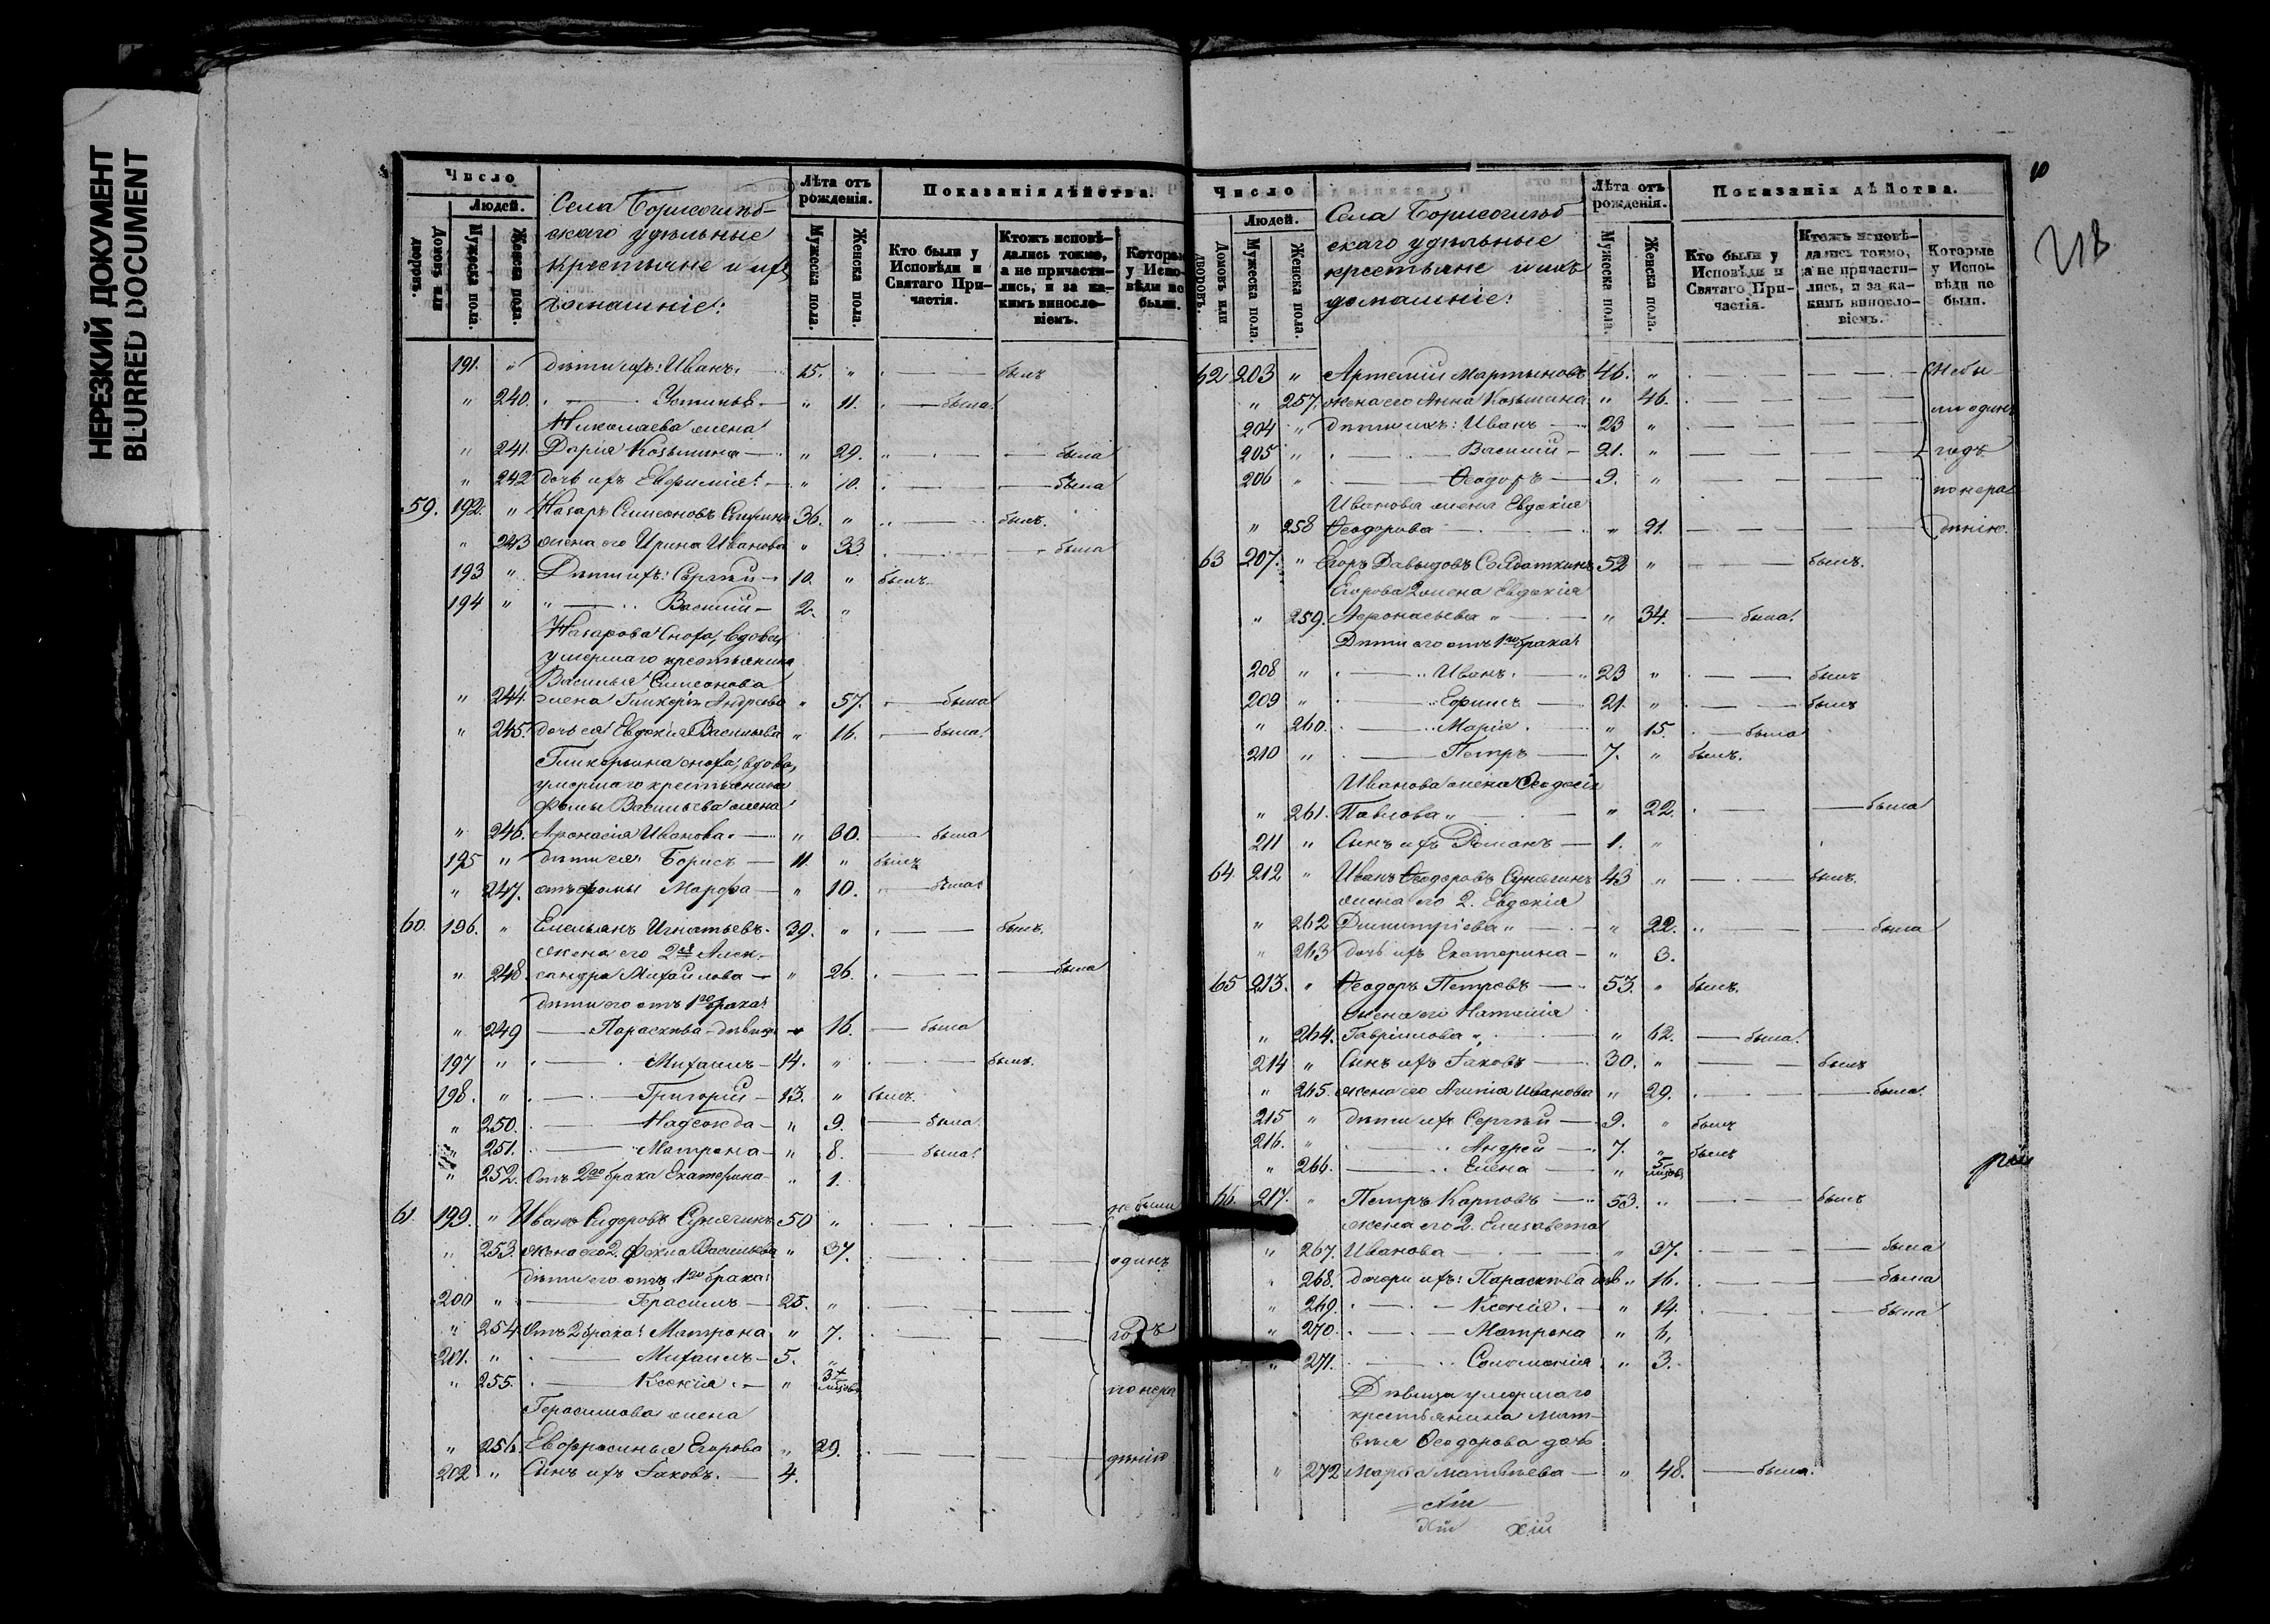 НЕРЕЗКИЙ ДОКУМЕНТ
BLURRED DOCUMENT
Число
Людей.
Домовъ или дворовъ.
Мужеска пола.
Женска пола.
Села Борисоглѣб-
скаго удѣльные
крестьяне и ихъ
домашніе:
Лѣта отъ рожденія.
Мужеска пола.
Женска пола.
Показанія дѣйства.
Кто были у Исповѣди и Святаго Причастія.
Ктожъ исповѣдались токмо, а не причастились, и за какимъ винословіемъ.
Которые у Исповѣди не были.
191. " дѣти ихъ: Иванъ. 15. " былъ
" 240. Устинья " 11. была
Николаева жена
" 241. Дарія Козьмина " 29. была
" 242 дочь ихъ Евфимія " 10. была
59. 192. " Назаръ Симеоновъ 36. " былъ.
" 243 жена его Ирина Иванова " 33. была
193 " Дѣти ихъ: Сергѣй 10. " былъ.
194 " Василій 2. "
Назарова сноха, вдова,
умершаго крестьянина
Василья Симеонова
" 244. жена Гликерія Андреева " 57. была
" 245. дочь ея Евдокія Васильева " 16. была.
Гликерьина сноха, вдова,
умершаго крестьянина
Фомы Васильева жена
" 246. Афонасія Иванова. " 30. была
195 " дѣти ея Борисъ 11. " былъ
" 247. отъ Фомы Марфа " 10. была
60. 196. " Емельянъ Игнатьевъ. 39. " былъ.
жена его 2я Алек-
" 248. сандра Михайлова " 26. была
дѣти его отъ 1го брака
" 249 Параскева дѣвица " 16. была
197 " Михаилъ 14. " былъ.
198. " Григорій 13. " былъ.
" 250. Надежда " 9. была.
" 251. Матрона " 8. была.
" 252. Отъ 2го брака Екатерина " 1.
61. 199. " Иванъ Сидоровъ Сунягинъ 50 " не были
" 253. жена его 2. Фекла Васильева " 37. одинъ
дѣти его отъ 1го брака:
200 " Герасимъ 25. "
" 254 Отъ 2 брака Матрона " 7. годъ
201. " Михаилъ 5. "
" 255. Ксенія " 3х мѣсяц.
по нера
Герасимова жена
" 256. Евфросинья Егорова " 29. дѣнію
202 " Сынъ ихъ Іаковъ. 4.
Число
Людей.
Домовъ или дворовъ.
Мужеска пола
Женска пола.
Села Борисоглѣб-
скаго удѣльные
крестьяне и ихъ
домашніе:
Лѣта отъ рожденія.
Мужеска пола.
Женска пола.
Показанія дѣйства.
Кто были у Исповѣди и Святаго Причастія.
Ктожъ исповѣдались токмо, а не причастились, и за какимъ винословіемъ.
Которые у Исповѣди не были.
10
213
62 203 " Артемій Мартыновъ 46. " Не бы-
" 257. жена его Анна Козьмина " 46. ли одинъ
204 " Дѣти ихъ: Иванъ 23 "
205 " Василій 21. " годъ
206 " Ѳеодоръ 9. " по нера
Иванова жена Евдокія
" 258 Ѳеодорова " 21. дѣнію.
63 207. " Егоръ Давыдовъ Солдаткинъ 52 " былъ.
Егорова 2 жена Евдокія
" 259. Афонасьева " 34. была.
Дѣти его отъ 1го брака:
208 " Иванъ. 23 " былъ
209 " Ефимъ 21. " былъ
" 260. Марія " 15. была
210 " Петръ 7. " былъ.
Иванова жена Ѳеодосія
" 261. Павлова " 22. была
211 " Сынъ ихъ Романъ 1. "
64. 212 " Иванъ Ѳеодоровъ Сунягинъ 43 " былъ.
жена его 2. Евдокія
" 262 Димитріева " 22. была
" 263 дочь ихъ Екатерина " 3.
65 213. " Ѳеодоръ Петровъ 53. " былъ.
Жена его Наталія
" 264. Гавріилова " 62. была.
214 " Сынъ ихъ Іаковъ 30. " былъ
" 265. жена его Агнія Иванова " 29. была.
215 " дѣти ихъ Сергѣй 9. " былъ
216. " Андрей 7. " былъ
" 266. Елена " 5 мѣсяц.
66. 217. " Петръ Карповъ 53. " былъ
жена его 2. Елизавета
" 267. Иванова " 37. была
" 268. дочери ихъ: Параскева дѣв. " 16. была
" 269. Ксенія. " 14. была
" 270. Матрона " 6.
" 271. Соломонія " 3.
Дѣвица умершаго
крестьянина Мат-
вѣя Ѳеодорова дочь
" 272 Марѳа Матвѣева " 48. была.